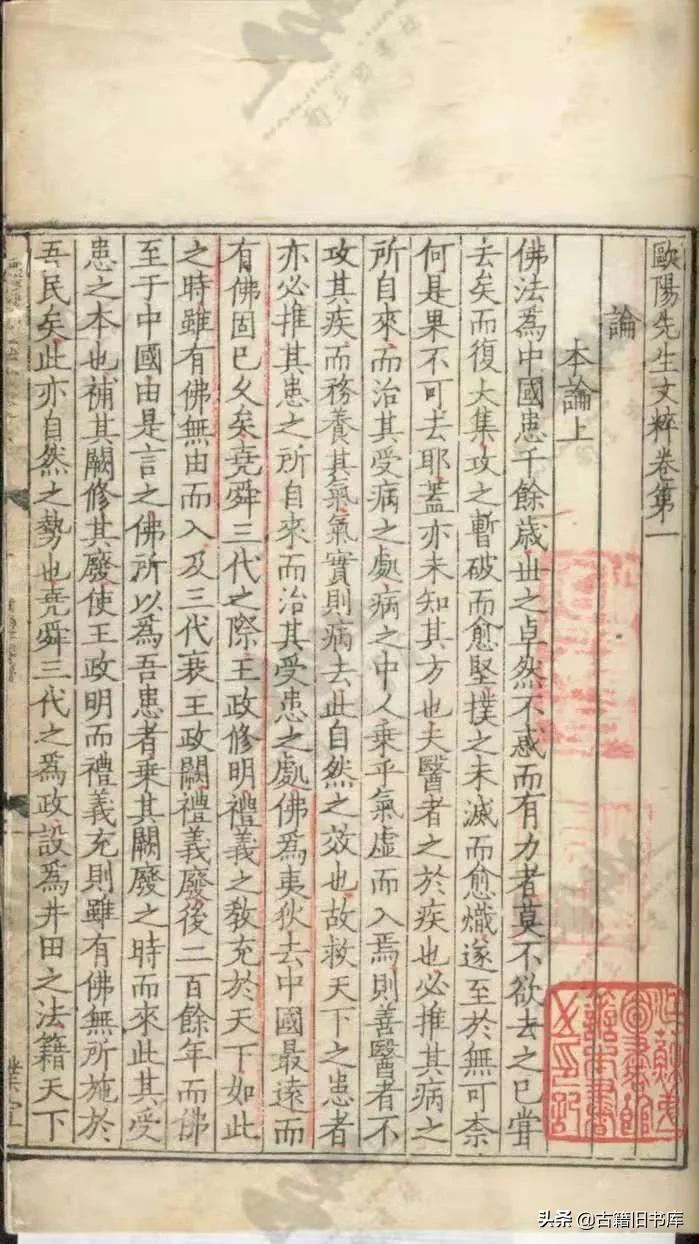 歐陽先生文粹卷第一
論
本論上
佛法爲中國患千餘歲世之卓然不惑而有力者莫不欲去之已嘗
去矣而復大集攻之暫破而愈堅撲之未滅而愈熾遂至於無可柰
何是果不可去耶蓋亦未知其方也夫醫者之於疾也必推其病之
所自來而治其受病之處病之中人乘乎氣虛而入焉則善醫者不
攻其疾而務養其氣氣實則病去此自然之效也故救天下之患者
亦必推其患之所自來而治其受患之處佛爲夷狄去中國最遠而
有佛固已久矣堯舜三代之際王政修明禮義之教充於天下如此
之時雖有佛無由而入及三代衰王政闕禮義廢後二百餘年而佛
至于中國由是言之佛所以爲吾患者乘其闕廢之時而來此其受
患之本也補其闕修其廢使王政明而禮義充則雖有佛無所施於
吾民矣此亦自然之勢也堯舜三代之爲政設爲井田之法籍天下
头条@古籍旧书库